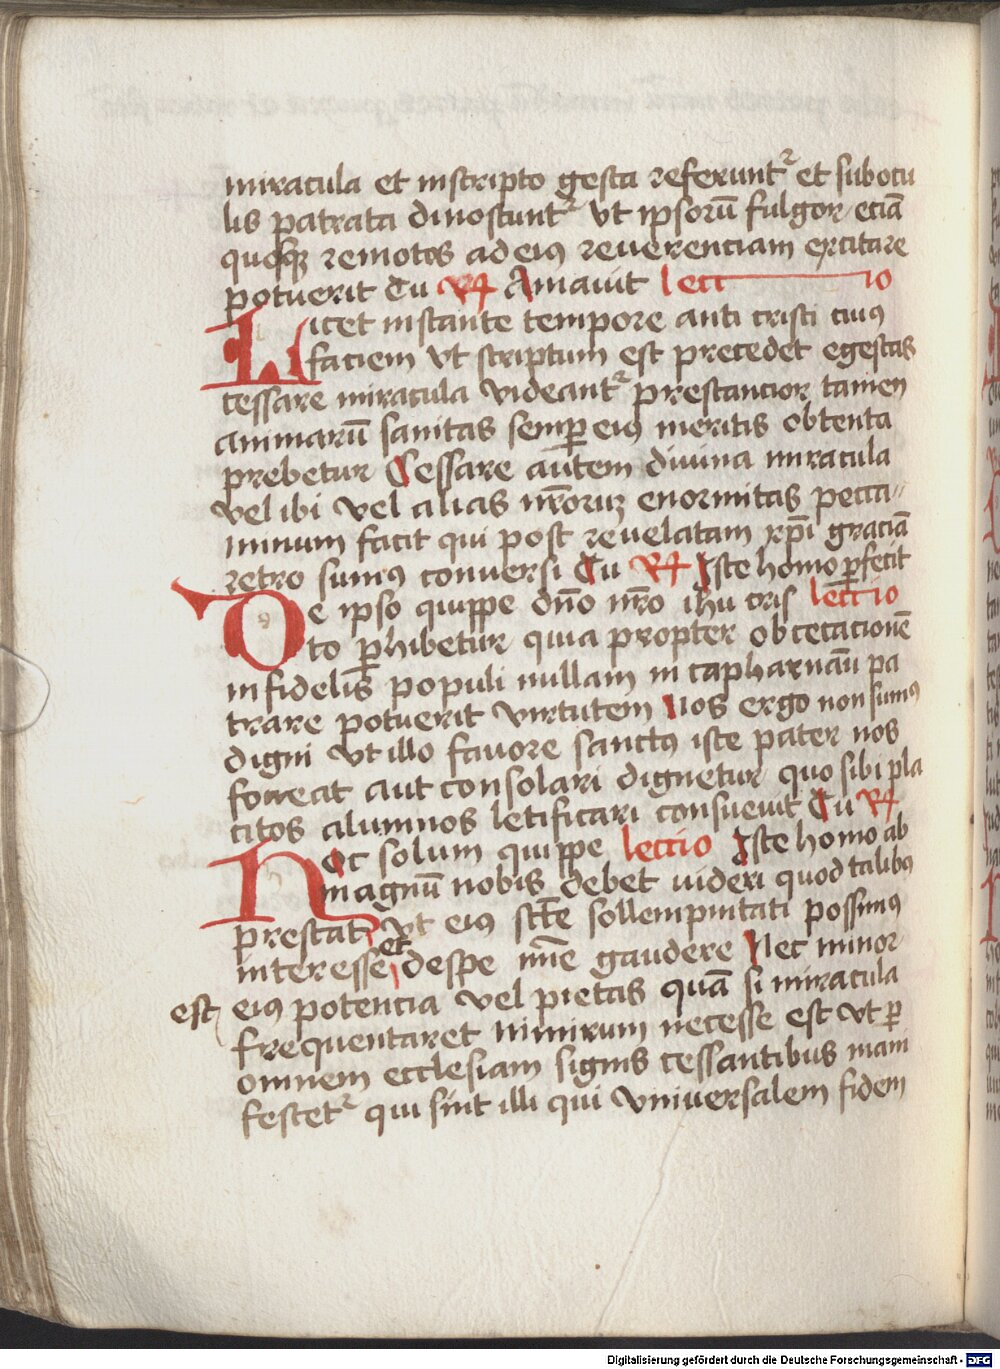 miracula et inscripto gesta referunt᷑ et subocu
lis patrata dinoscunt᷑ vt ipsorū fulgor eciā
quosqꝫ remotos ad eiꝰ reuerenciam excitare
potuerit Tu R̷ Amauit lectio
Licet instante tempore anti cristi cuiꝰ
faciem vt scriptum est precedet egestas
cessare miracula videant᷑ prestancior tamen
animarū sanitas semꝑ eiꝰ meritis obtenta
prebetur Cessare autem diuina miracula
vel ibi vel alias nr̄oruꝫ enormitas pecca//
minum facit qui post reuelatam xp̄i graciā
retro sumꝰ conuersi Tu R̷ Iste homo ꝑfecit
De ipso quippe dn̄o nr̄o ihu cris lectio
to ꝑhibetur quia propter obcecacionē
infidelis populi nullam in capharnaū pa
trare potuerit virtutem Nos ergo non sumꝰ
digni vt illo fauore sanctꝰ iste pater nos
foueat aut consolari dignetur quo sibi pla
citos alumnos letificari consueuit Tu R̷
Hoc solum quippe lectio Iste homo ab
magnū nobis debet uideri quod talibꝰ
prestat vt eiꝰ sctē sollempnitati possimꝰ
interesse et despe īnie gaudere Nec minor
est eiꝰ potencia vel pietas quā si miracula
frequentaret nimirum necesse est vt ꝑ
omnem ecclesiam signis cessantibus mani
festet᷑ qui sint illi qui vniuersalem fidem
Digitalisierung gefördert durch die Deutsche Forschungsgemeinschaft - DFG